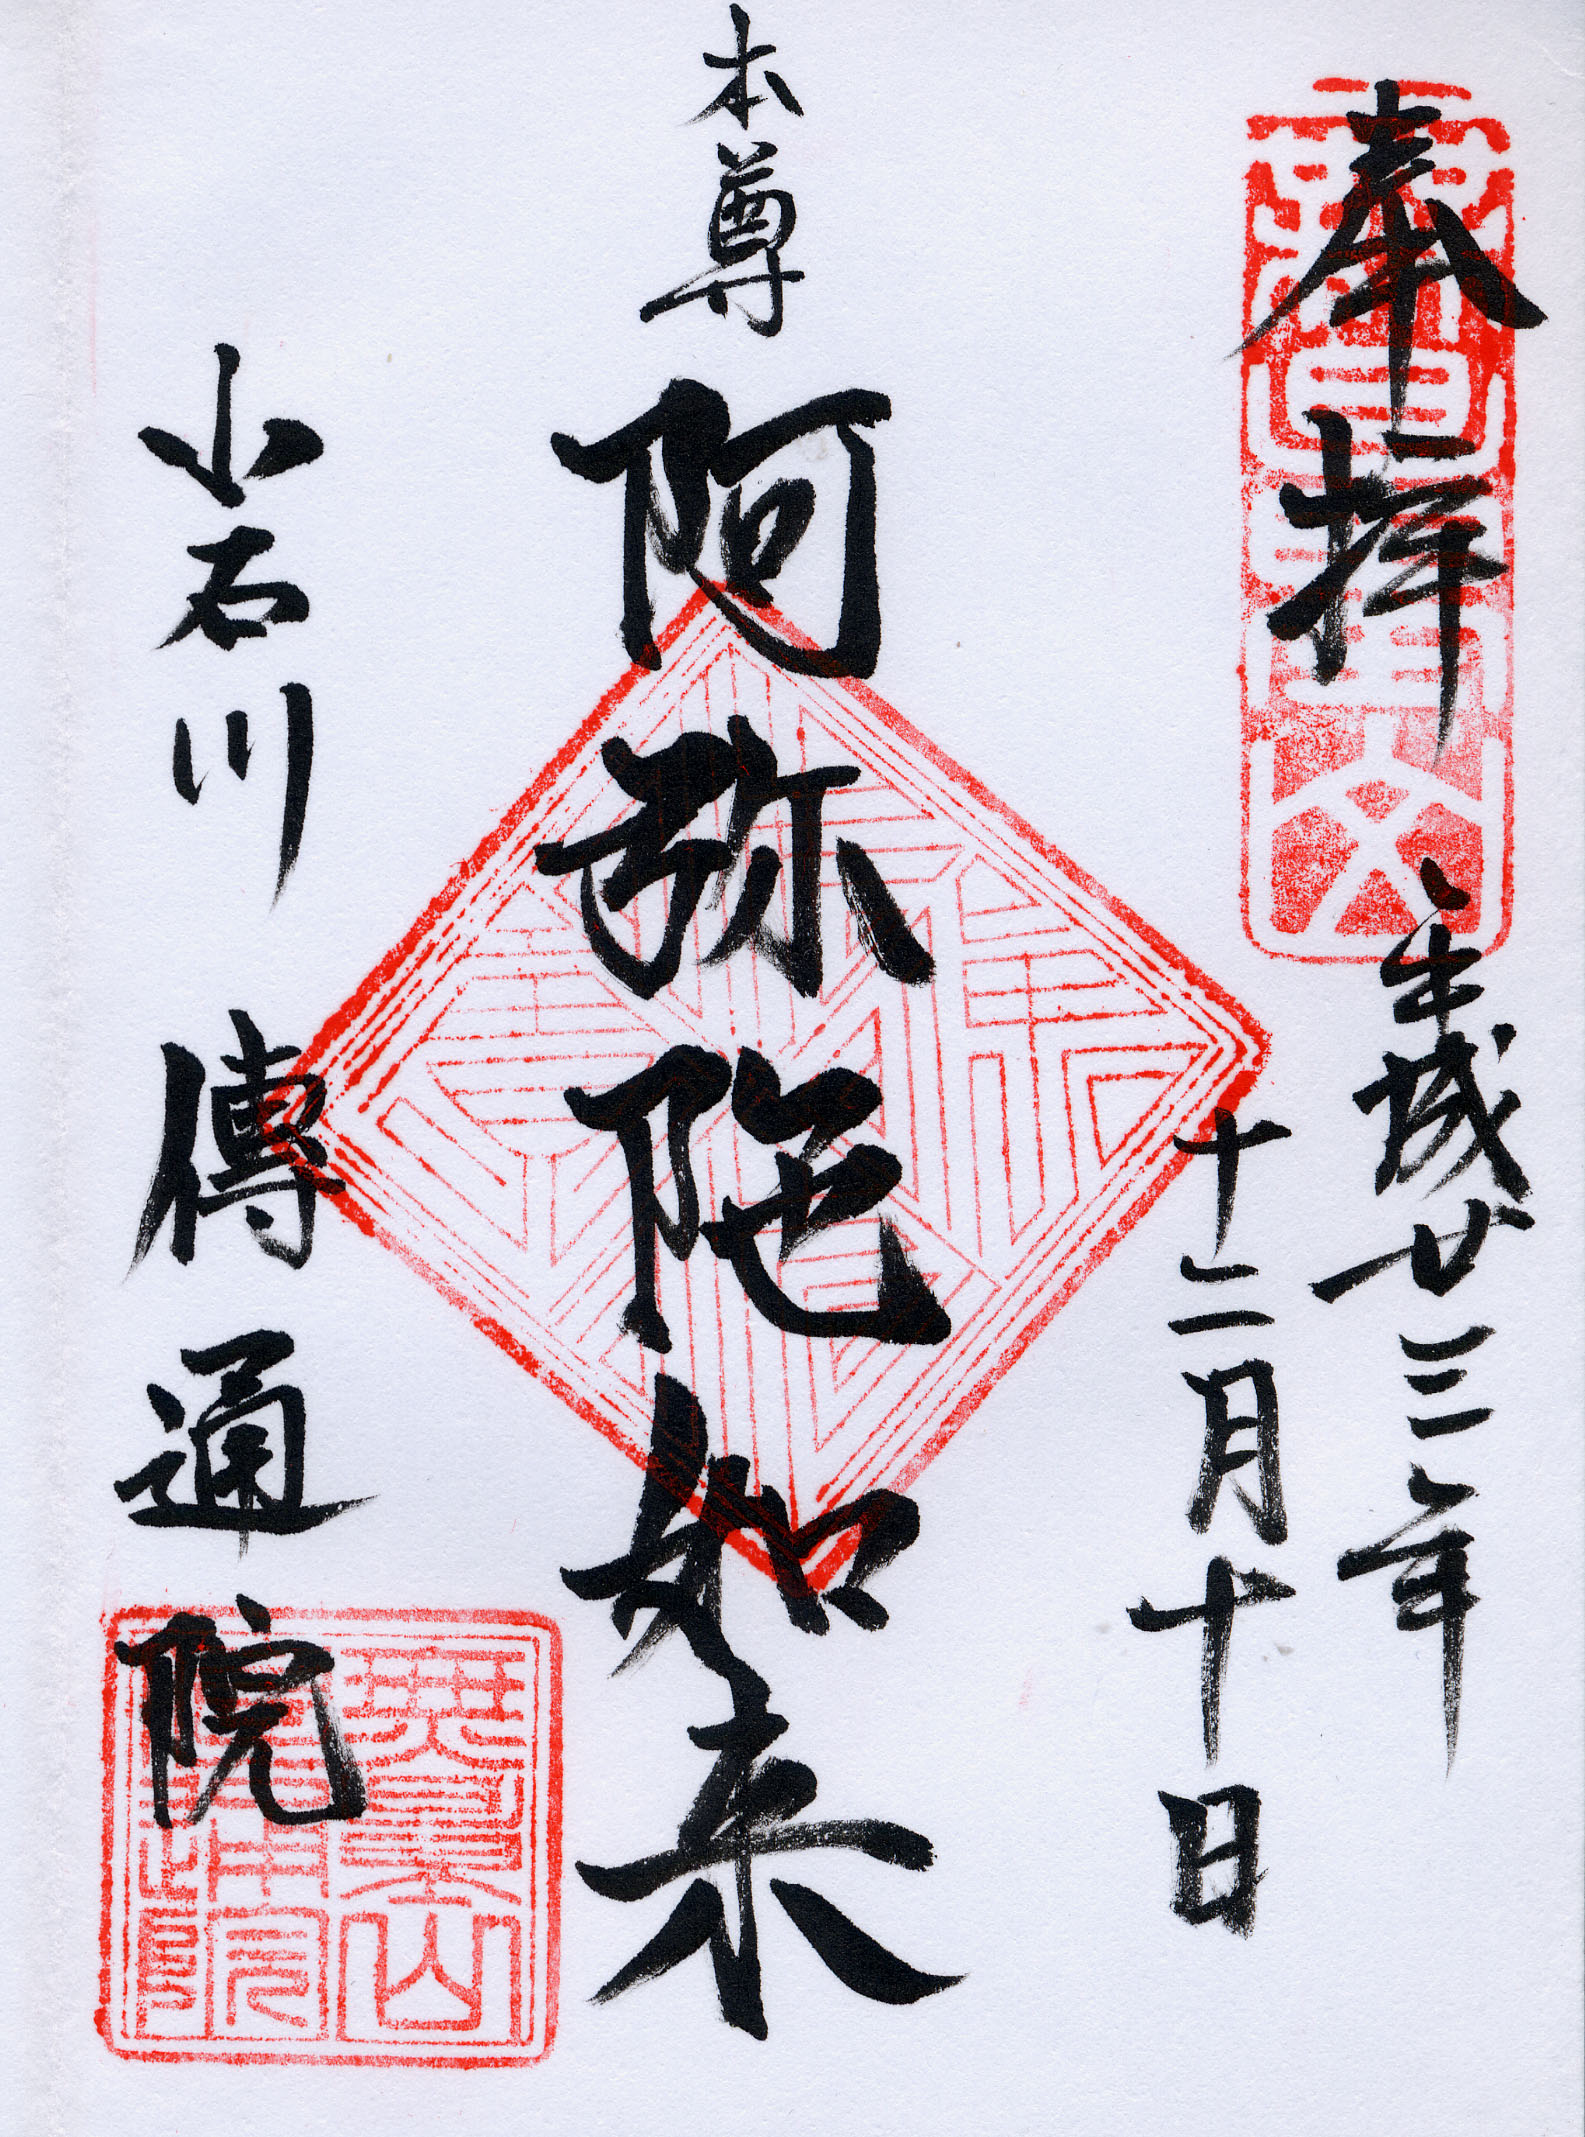 奉拝
平成廿三年
十二月十日
本尊
阿弥陀如来
小石川
傳通院
無量山
傳通院